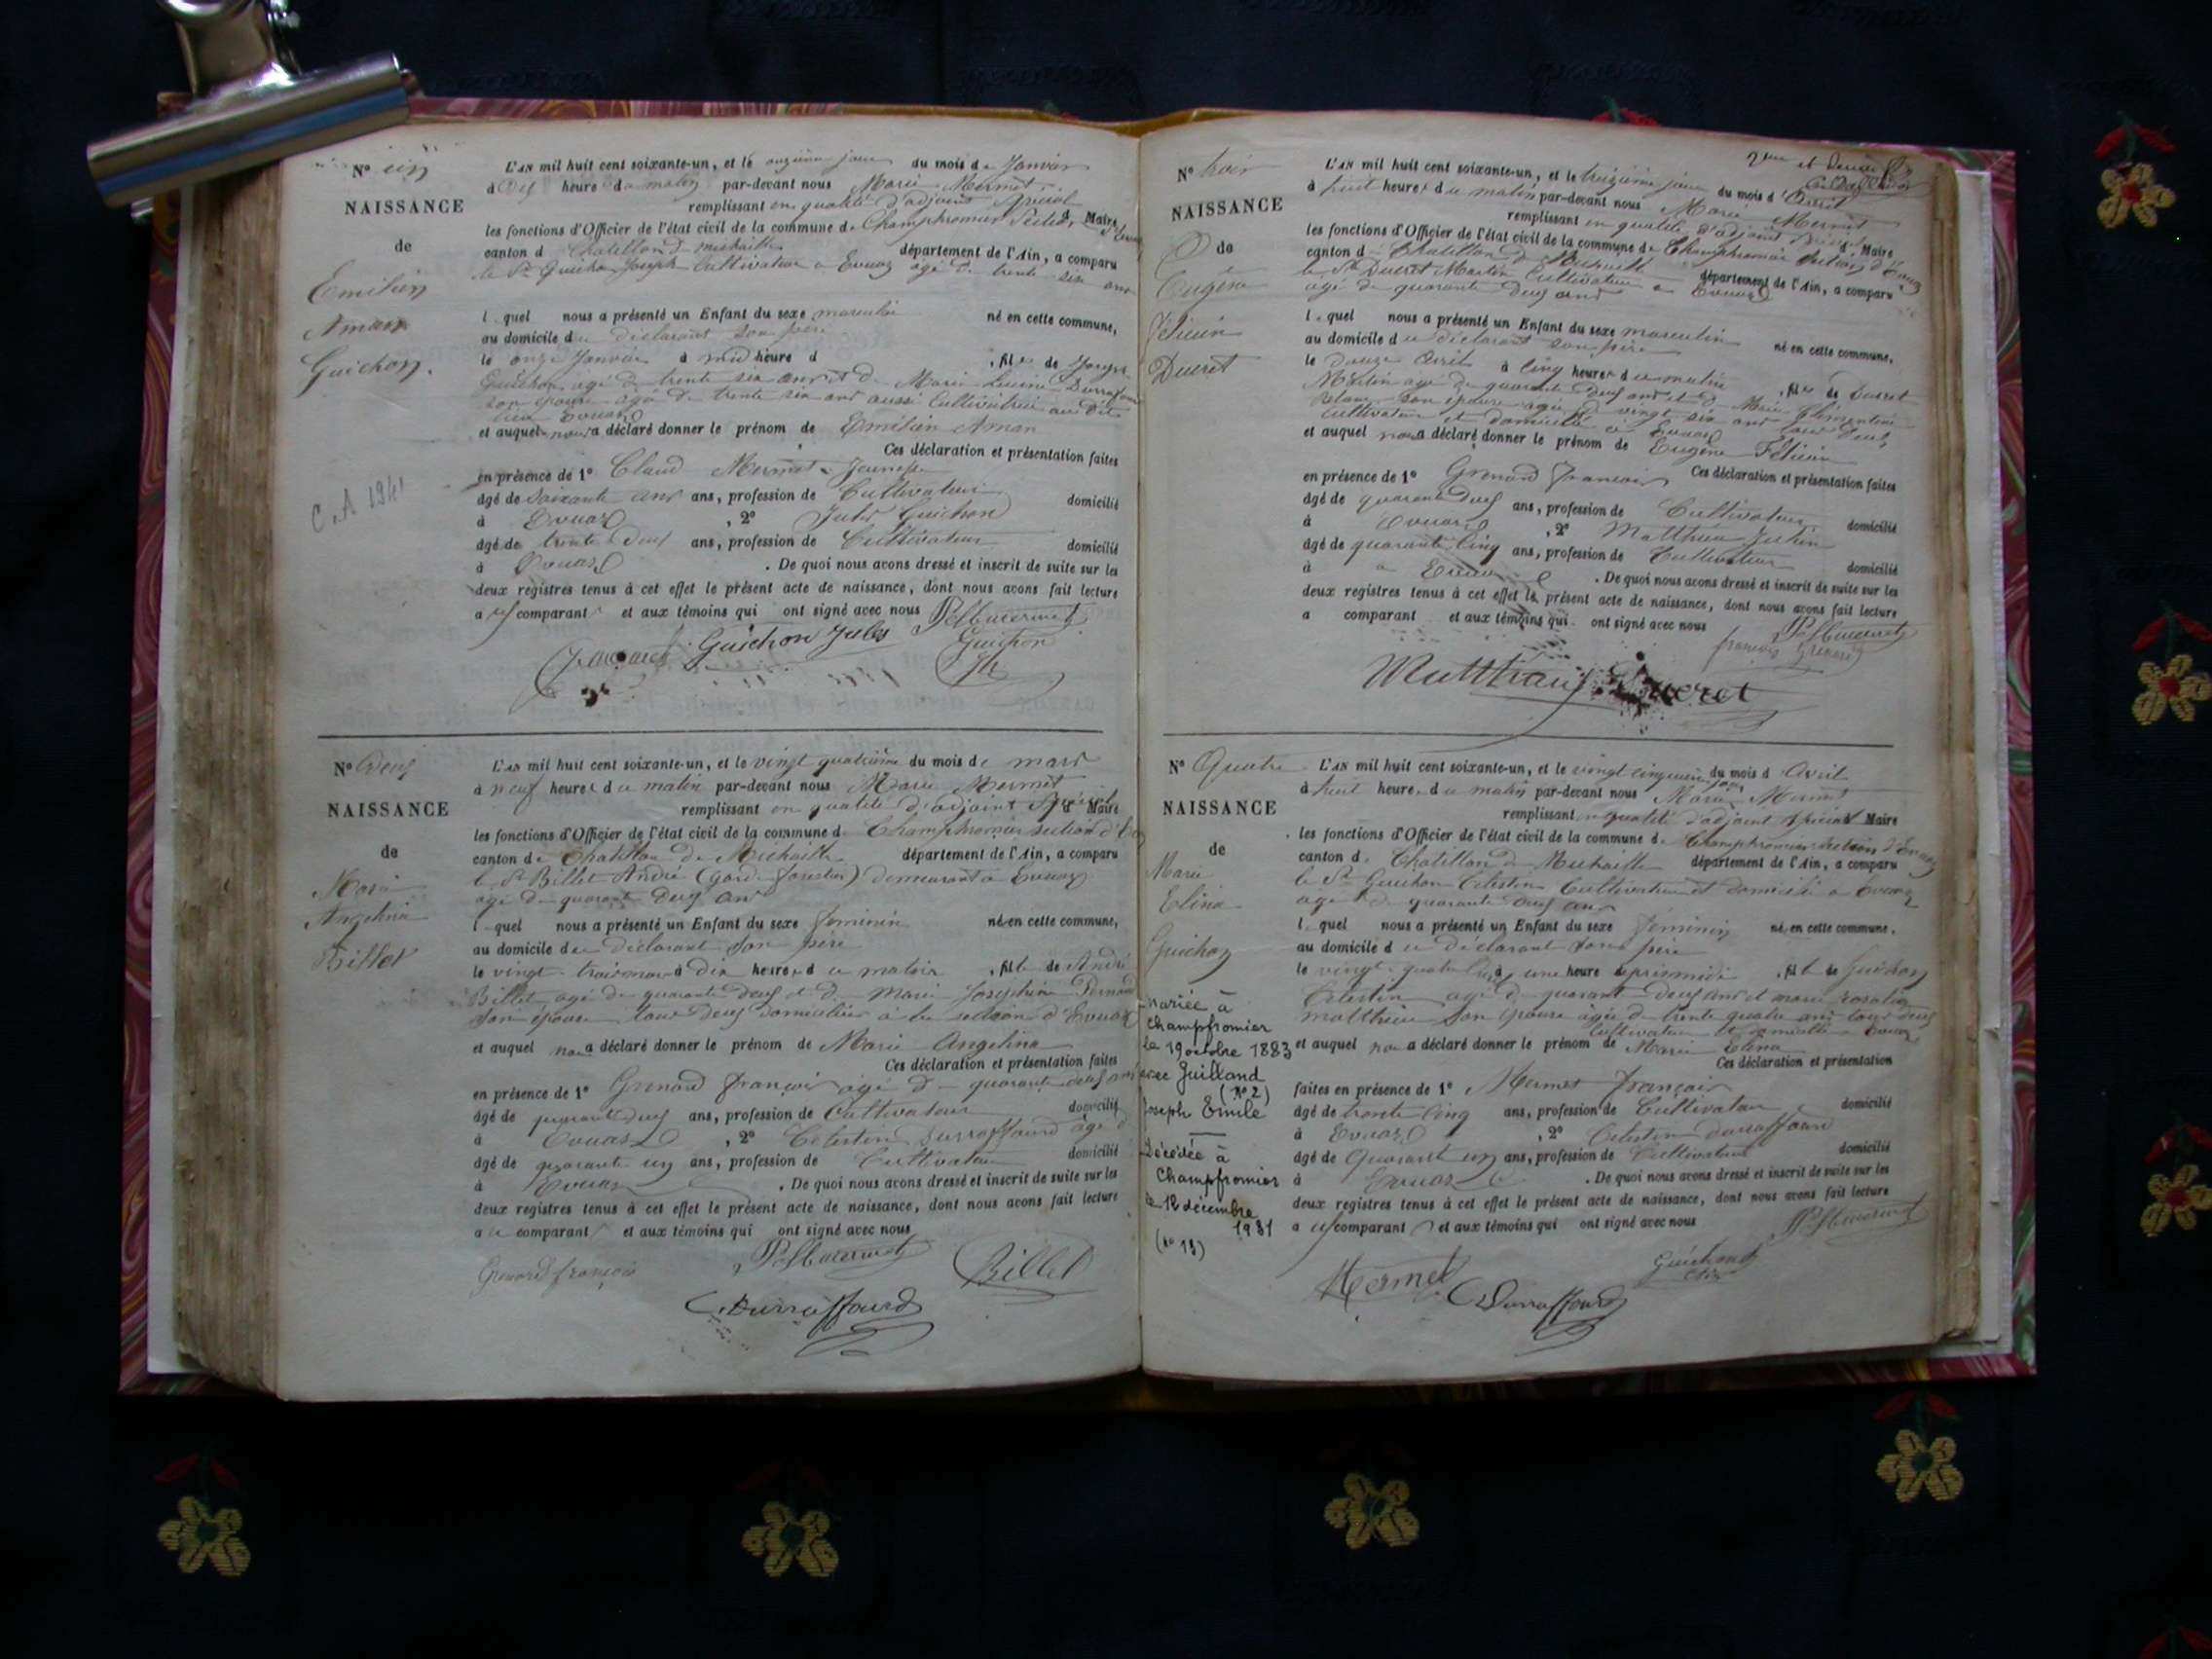 N° un
NAISSANCE
de
Emilien
Aman
Guichon.
C.A 1941
L'AN mil huit cent soixante-un, et le onzième jour du mois de Janvier
à dix heure du matin par-devant nous Marie Mermet
remplissant en qualité d'adjoint spécial Maire
les fonctions d'Officier de l'état civil de la commune de Champfromier Section
canton d Chatillon d michaille département de l'Ain, a comparu
le Sr Guichon Joseph Cultivateur a Evouaz agé de trente six ans
l quel nous a présenté un Enfant du sexe masculin né en cette commune,
au domicile du déclarant son père
le onze Janvier à midi heure d , fils de Joseph
Guichon agé de trente six ans et de Marie
son épouse agé de trente six ans aussi Cultivatrice au dit
lieu Evouaz
et auquel nous a déclaré donner le prénom de Emilien Aman
Ces déclaration et présentation faites
en présence de 1° Claud Mermet
âgé de soixante ans ans, profession de Cultivateur domicilié
à Evouaz , 2° Jules Guichon
âgé de trente deux ans, profession de Cultivateur domicilié
à Evouaz . De quoi nous avons dressé et inscrit de suite sur les
deux registres tenus à cet effet le présent acte de naissance, dont nous avons fait lecture
a comparant et aux témoins qui ont signé avec nous
Guichon Jules
Guichon
N° Deux
NAISSANCE
de
Marie
Angelina
Billet
L'AN mil huit cent soixante-un, et le vingt quatrième du mois de mars
à neuf heures du matin par-devant nous Marie Mermet
remplissant en qualité d'adjoint Spécial Maire
les fonctions d'Officier de l'état civil de la commune d Champfromier section d'
canton de Chatillon de Michaille département de l'Ain, a comparu
le Sr Billet André (garde forestier) demeurant a Evouaz
agé de quarante deux ans
l quel nous a présenté un Enfant du sexe feminin né en cette commune,
au domicile du déclarant son père
le vingt trois mars à dix heures du matin , fille de André
Billet, agé de quarante deux et d Marie Josephine
son épouse tous deux domiciliés à la section d'Evouaz
et auquel nous a déclaré donner le prénom de Marie Angelina
Ces déclaration et présentation faites
en présence de 1° Grenard françois âgé d quarante deux ans
âgé de quarante deux ans, profession de Cultivateur domicilié
à Evouaz , 2° Célestin Durraffourd âgé d
âgé de quarante un ans, profession de Cultivateur domicilié
à Evouaz . De quoi nous avons dressé et inscrit de suite sur les
deux registres tenus à cet effet le présent acte de naissance, dont nous avons fait lecture
a comparant et aux témoins qui ont signé avec nous
Grenard françois Billet
Durraffourd
N° trois
NAISSANCE
de
Eugène
Félicien
Ducret
2me et
L'AN mil huit cent soixante-un, et le treizième jour du mois d'Avril
à huit heures du matin par-devant nous Marie Mermet
remplissant en qualité d'adjoint spécial Maire
les fonctions d'Officier de l'état civil de la commune de Champfromier Section d'Evouaz
canton d Chatillon d Michaille département de l'Ain, a comparu
le Sr Ducret Martin Cultivateur a Evouaz
agé de quarante deux ans
l quel nous a présenté un Enfant du sexe masculin né en cette commune,
au domicile du déclarant son père
le douze Avril à cinq heures du matin , fils de Ducret
Martin agé de quarante deux ans et d Marie
son épouse agée d vingt six ans tous deux
cultivateur et domicilié à Evouaz
et auquel nous a déclaré donner le prénom de Eugène Félicien
Ces déclaration et présentation faites
en présence de 1° Grenard François
âgé de quarante deux ans, profession de Cultivateur domicilié
à Evouaz , 2° Matthieu
âgé de quarante cinq ans, profession de Cultivateur domicilié
à a Evouaz . De quoi nous avons dressé et inscrit de suite sur les
deux registres tenus à cet effet le présent acte de naissance, dont nous avons fait lecture
a comparant et aux témoins qui ont signé avec nous
françois Grenard
Ducret
N° Quatre
NAISSANCE
de
Marie
Elina
Guichon
Mariée à
Champfromier
le 19 octobre 1883
avec Guilland
(N°2)
Joseph Emile
Décédée à
Champfromier
le 12 décembre
1931
(N° 13)
L'AN mil huit cent soixante-un, et le vingt cinquième jour du mois d Avril
à huit heures du matin par-devant nous Marie Mermet
remplissant en qualité d'adjoint spécial Maire
les fonctions d'Officier de l'état civil de la commune d Champfromier Section d'Evouaz
canton de Chatillon d Michaille département de l'Ain, a comparu
le Sr Guichon Célestin Cultivateur et domicilié a Evouaz
agé de quarante deux ans
l quel nous a présenté un Enfant du sexe féminin né en cette commune.
au domicile du déclarant son père
le vingt quatre à une heure après midi , fille de Guichon
Célestin agé d quarante deux ans et marie rosalie
matthieu son épouse agée de trente quatre ans tous deux
cultivateur et domicilié Evouaz
et auquel nous a déclaré donner le prénom de Marie Elina
Ces déclaration et présentation
faites en présence de 1° Mermet françois
âgé de trente cinq ans, profession de Cultivateur domicilié
à Evouaz , 2° Célestin durraffourd
âgé de Quarante un ans, profession de Cultivateur domicilié
à Evouaz . De quoi nous avons dressé et inscrit de suite sur les
deux registres tenus à cet effet le présent acte de naissance, dont nous avons fait lecture
a comparant et aux témoins qui ont signé avec nous
Mermet Durraffourd Guichon